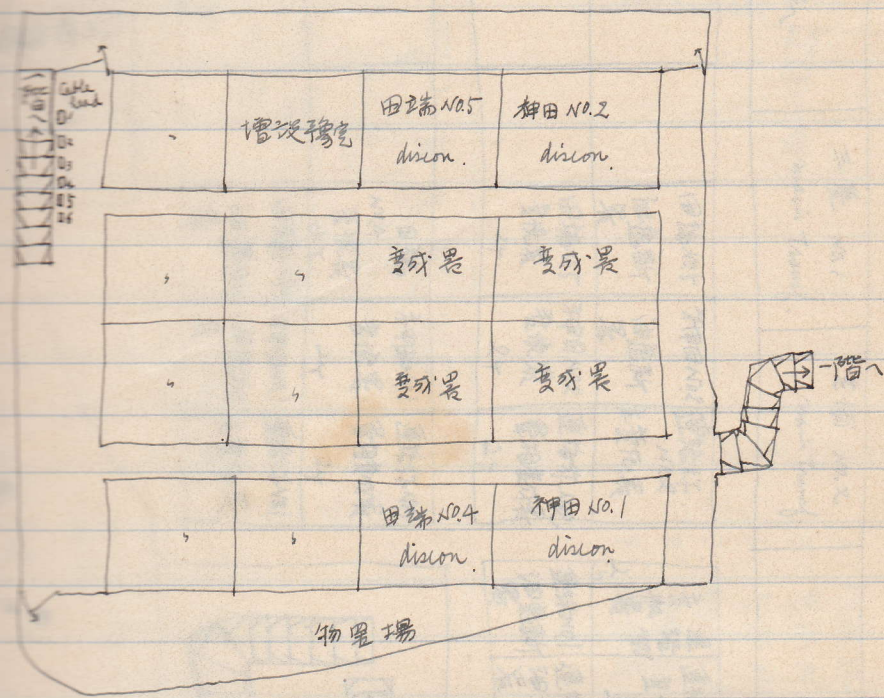 Cable
head
1
2
3
4
5
6
〃
増設予定
田端 No.5
discon.
神田 No.2
discon.
〃
〃
変成器
変成器
〃
〃
変成器
変成器
一階へ
〃
〃
田端 No.4
discon.
神田 No.1
discon.
物置場